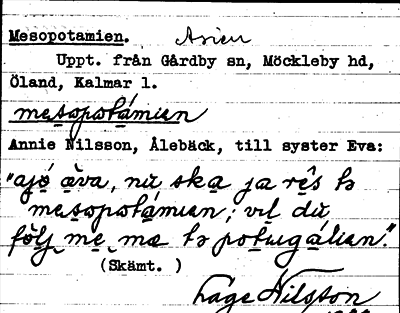 Mesopotamien. Asien
Uppt. från Gårdby sn, Möckleby hd,
Öland, Kalmar l.
mesopotámien
Annie Nilsson, Ålebäck, till syster Eva:
"ajó äva, nu ska ja rês to
mesopotámien; vil du
följ me mæ to potugálien."
(Skämt. )
Låge Nilsson